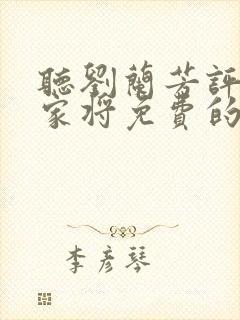 聽劉蘭芳評
家將免費的
李彥琴